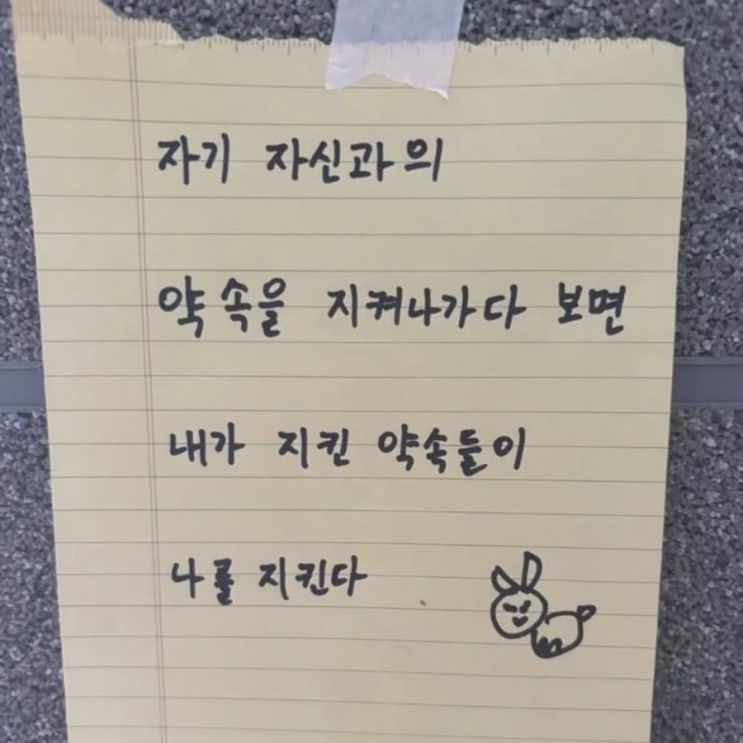 자기 자신과의
약속을 지켜나가다 보면
내가 지킨 약속들이
나를 지킨다